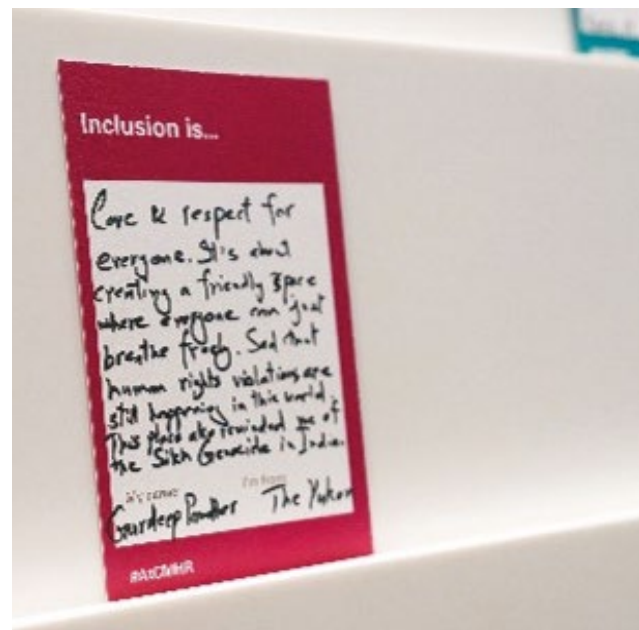 Inclusion is...
Love & respect for
everyone. It's about
creating a friendly space
where everyone can just
breathe freely. Sad that
human rights violations are
still happening in this world.
This place also reminded me of
the Sikh Genocide in India.
My name
I'm from
Gurdeep Pandher The Yukon
#AtCMHR